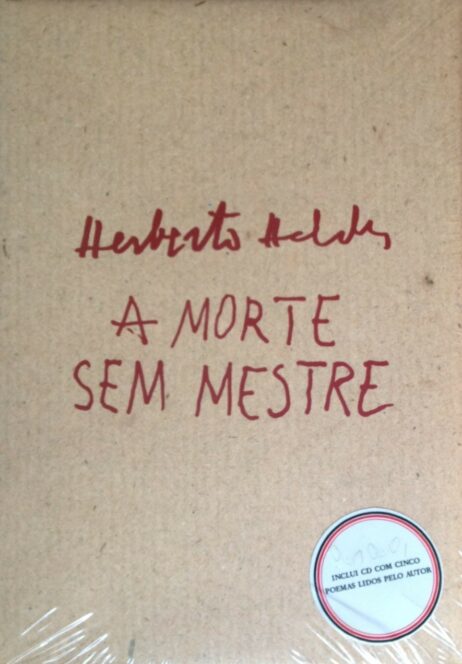 Herberto Helder
A MORTE
SEM MESTRE
INCLUI CD COM CINCO
POEMAS LIDOS PELO AUTOR